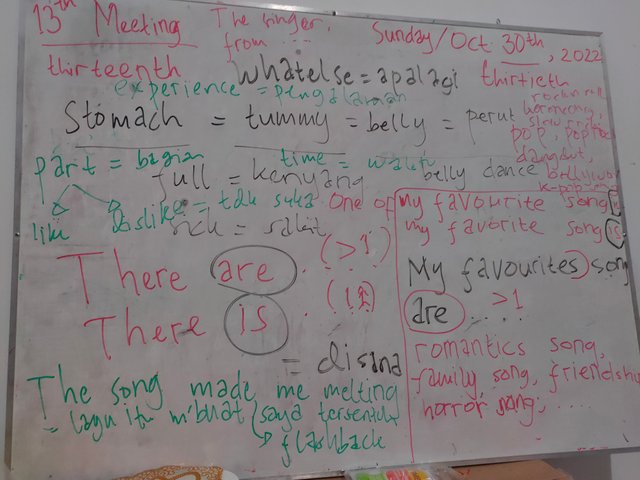 13th Meeting
The singer.
from ...
Sunday/Oct 30th, 2022
thirteenth
whatelse = apalagi
thirtieth
experience = pengalaman
rock n roll
Stomach = tummy = belly = perut
pop, pop rock
dangdut,
bollywood
k-pop
part = bagian
time = waktu
belly dance
full = kenyang
like
doslike = tdk suka
sick = sakit
One of my favourite song is
my favorite song is
There are . (>1)
There is . (1)
= disana
My favourites song
are >1 ....
romantics song,
family, song, friendship
horror song, ....
The song made me melting
= lagu itu m'buat saya tersentuh
flashback